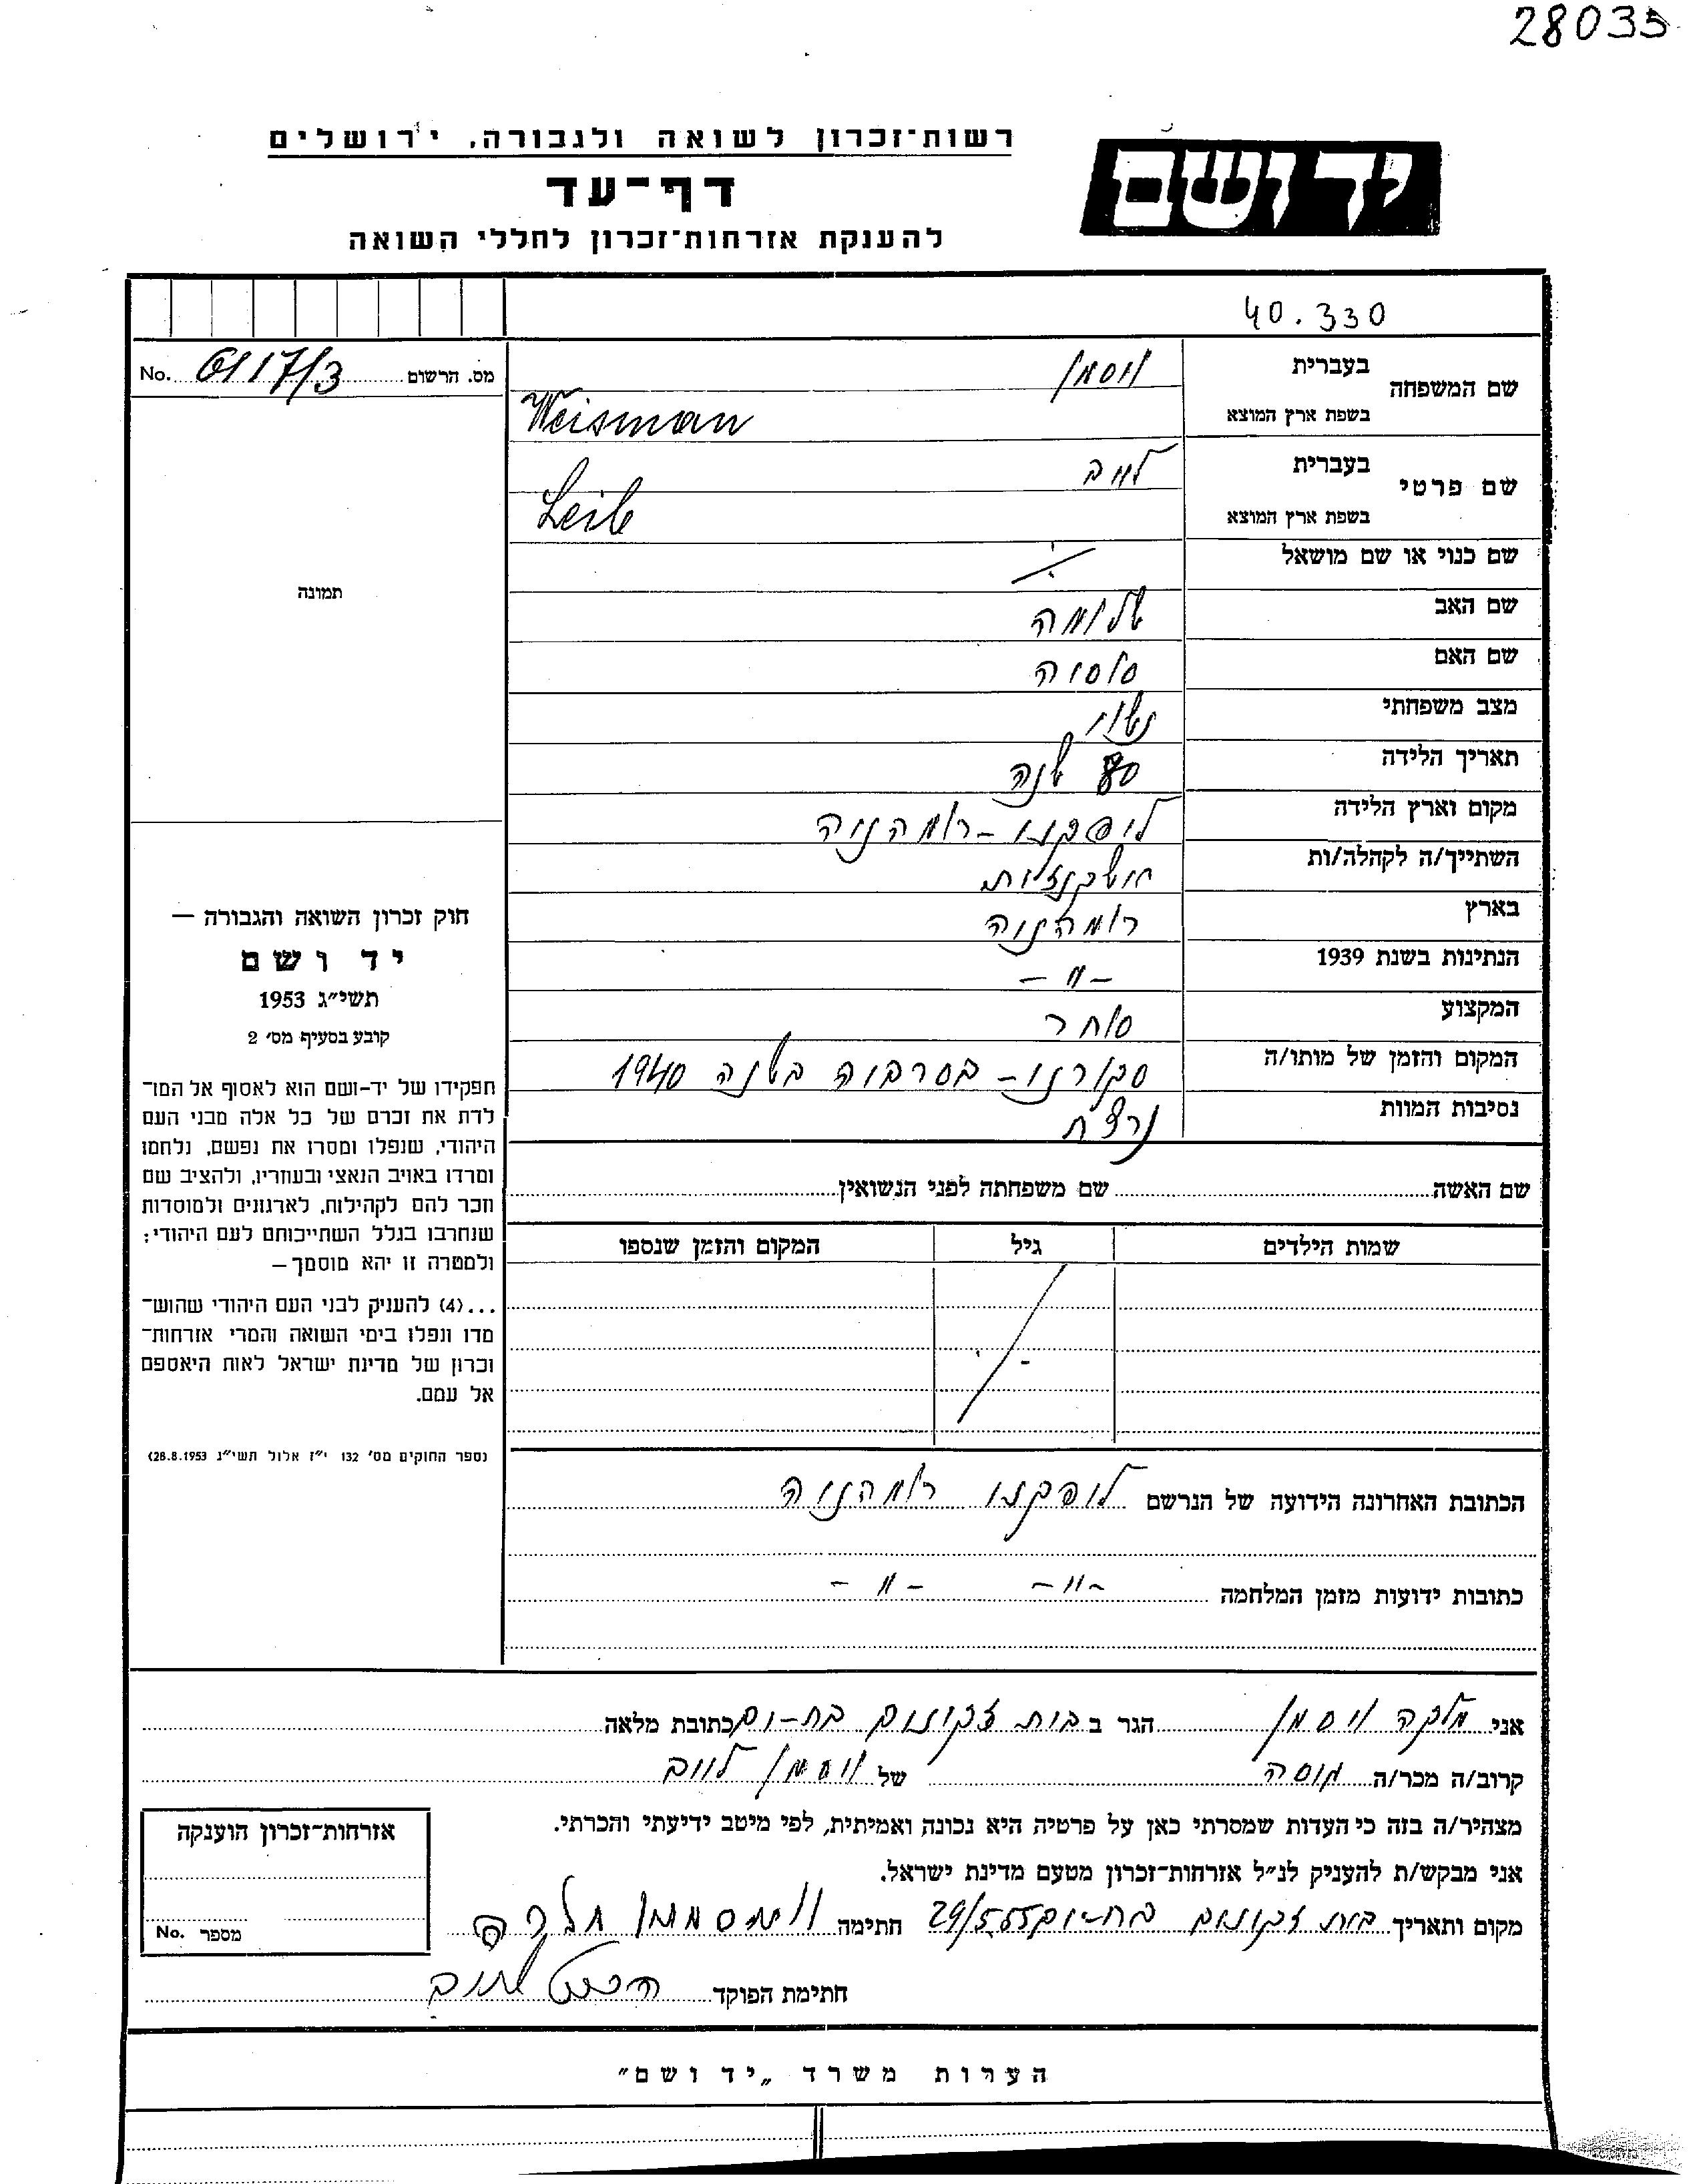 28035
רשות־זכרון לשואה ולגבורה, ירושלים
יד ושם
דף־עד
להענקת אזרחות־זכרון לחללי השואה
40.330
מס. הרשום 6117/3 No.
שם המשפחה
בעברית ויסמן
בשפת ארץ המוצא Weisman
שם פרטי
בעברית לייב
בשפת ארץ המוצא Leib
שם כנוי או שם מושאל
תמונה
שם האב שלומה
שם האם סוסיה
מצב משפחתי נשוי
תאריך הלידה 80 שנה
מקום וארץ הלידה ליפקני - רומהניה
השתייך/ה לקהלה/ות
בארץ רומהניה
הנתינות בשנת 1939 - " -
המקצוע סוחר
המקום והזמן של מותו/ה סקורני - בסרביה בשנה 1940
נסיבות המוות נרצח
שם האשה שם משפחתה לפני הנשואין
שמות הילדים גיל המקום והזמן שנספו
חוק זכרון השואה והגבורה —
יד ושם
תשי״ג 1953
קובע בסעיף מס׳ 2
תפקידו של יד-ושם הוא לאסוף אל המו־
לדת את זכרם של כל אלה מבני העם
היהודי, שנפלו ומסרו את נפשם, נלחמו
ומרדו באויב הנאצי ובעוזריו, ולהציב שם
וזכר להם לקהילות, לארגונים ולמוסדות
שנחרבו בגלל השתייכותם לעם היהודי;
ולמטרה זו יהא מוסמך —
...(4) להעניק לבני העם היהודי שהוש־
מדו ונפלו בימי השואה והמרי אזרחות־
זכרון של מדינת ישראל לאות היאספם
אל עמם.
(ספר החוקים מס׳ 132 י״ז אלול תשי״ג 28.8.1953)
הכתובת האחרונה הידועה של הנרשם ליפקני רומהניה
כתובות ידועות מזמן המלחמה - " - - " -
אני מלכה ויסמן הגר ב בית זקנים בת-ים כתובת מלאה
קרוב/ה מכר/ה של ויסמן לייב
מצהיר/ה בזה כי העדות שמסרתי כאן על פרטיה היא נכונה ואמיתית, לפי מיטב ידיעתי והכרתי.
אני מבקש/ת להעניק לנ״ל אזרחות־זכרון מטעם מדינת ישראל.
מקום ותאריך בית זקנים בת-ים 29/5.55 חתימה וויסמן מלכה
חתימת הפוקד
אזרחות־זכרון הוענקה
מספר No.
הערות משרד „יד ושם״